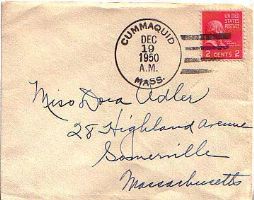 CUMMAQUID
DEC
19
1950
A.M.
MASS.
UNITED STATES
POSTAGE
2 CENTS 2
Miss Dora Adler
28 Highland Avenue
Somerville
Massachusetts